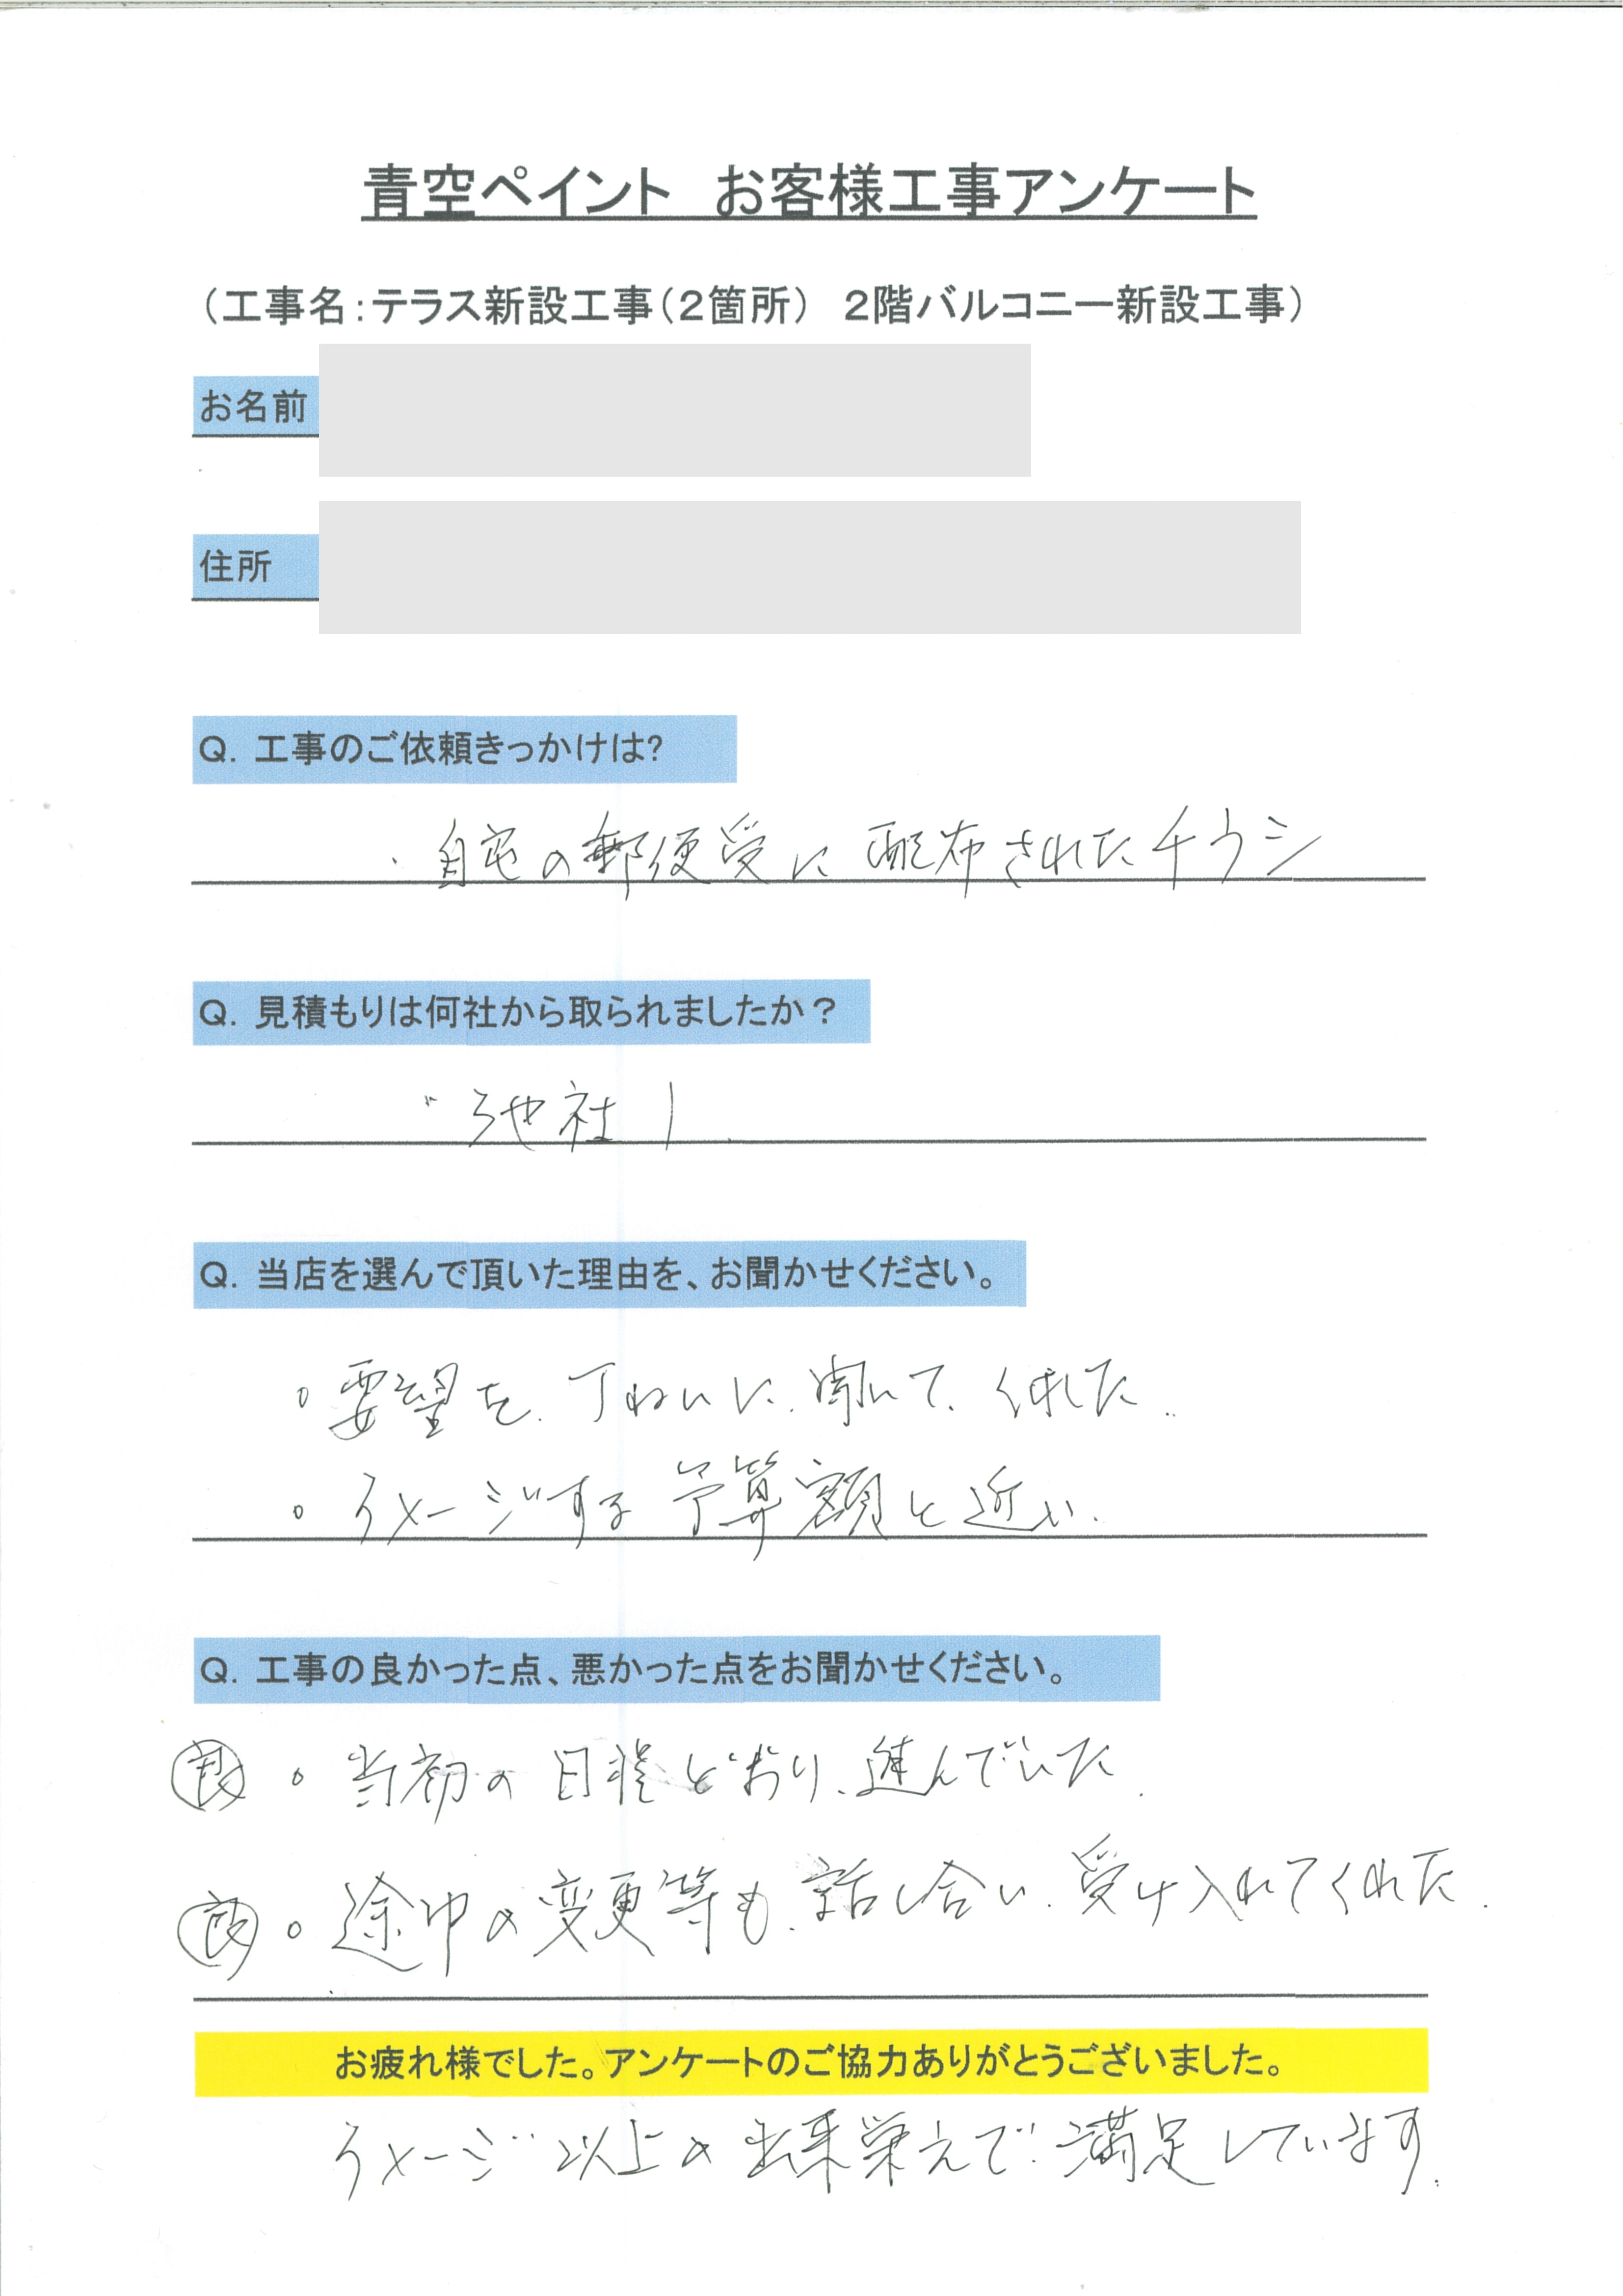 青空ペイント お客様工事アンケート
(工事名:テラス新設工事(2箇所) 2階バルコニー新設工事)
お名前
住所
Q. 工事のご依頼きっかけは?
・自宅の郵便受に配布されたチラシ
Q. 見積もりは何社から取られましたか?
・他社1
Q. 当店を選んで頂いた理由を、お聞かせください。
・要望を、丁ねいに、聞いて、くれた.
・イメージする予算額と近い.
Q. 工事の良かった点、悪かった点をお聞かせください。
良・当初の日程どおり、進んでいた.
良・途中の変更等も、話し合い、受け入れてくれた.
お疲れ様でした。アンケートのご協力ありがとうございました。
イメージ以上の出来栄えで満足しています.